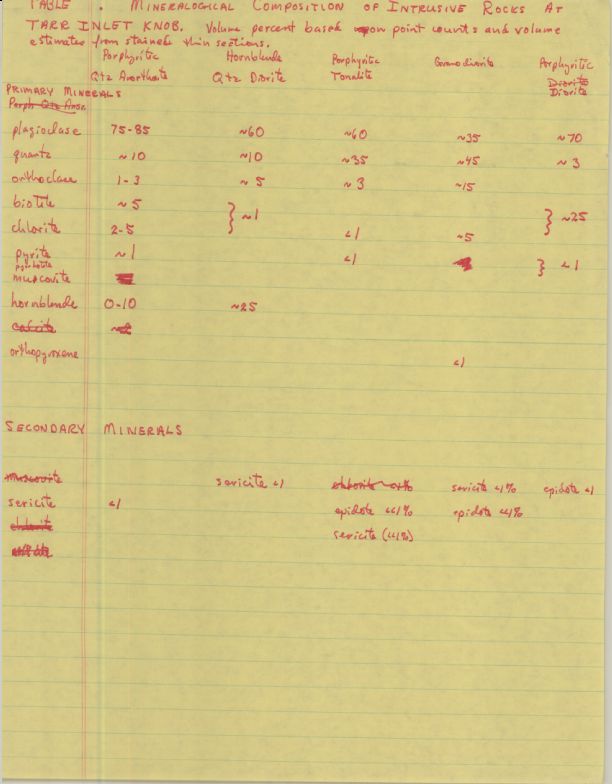 TABLE . MINERALOGICAL COMPOSITION OF INTRUSIVE ROCKS AT
TARR INLET KNOB. Volume percent based upon point counts and volume
estimates from stained thin sections.
Porphyritic Hornblende Porphyritic Granodiorite Porphyritic
Qtz Anorthosite Qtz Diorite Tonalite Diorite
Diorite
PRIMARY MINERALS
Porph Qtz Anor.
plagioclase 75-85 ~60 ~60 ~35 ~70
quartz ~10 ~10 ~35 ~45 ~3
orthoclase 1-3 ~5 ~3 ~15
biotite ~5 } ~1 } ~25
chlorite 2-5 <1 ~5
pyrite ~1 <1 } <1
pyrrhotite
muscovite
hornblende 0-10 ~25
calcite ~2
orthopyroxene <1
SECONDARY MINERALS
muscovite sericite <1 chlorite <1% sericite <1% epidote <1
sericite <1 epidote <<1% epidote <<1%
chlorite sericite (<<1%)